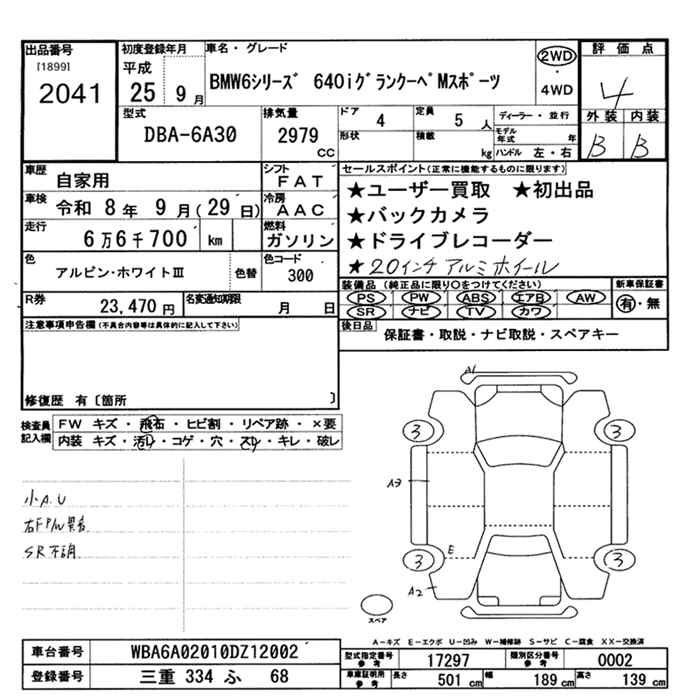 出品番号
[1899]
2041
初度登録年月
平成
25 9月
車名・グレード
BMW6シリーズ 640iグランクーペMスポーツ
2WD
・
4WD
評価点
4
外装 内装
B B
型式
DBA-6A30
排気量
2979
cc
ドア
4
定員
5 人
形状
積載
kg
ディーラー・並行
モデル年式 年
ハンドル 左・右
車歴
自家用
シフト
FAT
車検
令和 8年 9月(29日)
冷房
AAC
走行
6万6千700 km
燃料
ガソリン
色
アルピン・ホワイトⅢ
色替
色コード
300
R券
23,470円
名変通知期限
月 日
セールスポイント(正常に機能するものに限ります)
★ユーザー買取 ★初出品
★バックカメラ
★ドライブレコーダー
★20インチアルミホイール
装備品(純正品に限り○をつけてください)
PS PW ABS エアB AW
SR ナビ TV カワ
新車保証書
有・無
後日品
保証書・取説・ナビ取説・スペアキー
注意事項申告欄(不具合内容等は具体的に記入して下さい)
修復歴 有〔箇所 〕
検査員記入欄
FW キズ・飛石・ヒビ割・リペア跡・×要
内装 キズ・汚レ・コゲ・穴・スレ・キレ・破レ
小A.U
SR不調
A1
3 3
A3
E
3 3
A2
スペア
A-キズ E-エクボ U-凹み W-補修跡 S-サビ C-腐食 XX-交換済
車台番号
WBA6A02010DZ12002
登録番号
三重 334 ふ 68
型式指定番号
参考
17297
類別区分番号
参考
0002
車庫証明用
参考
長さ
501 cm
幅
189 cm
高さ
139 cm